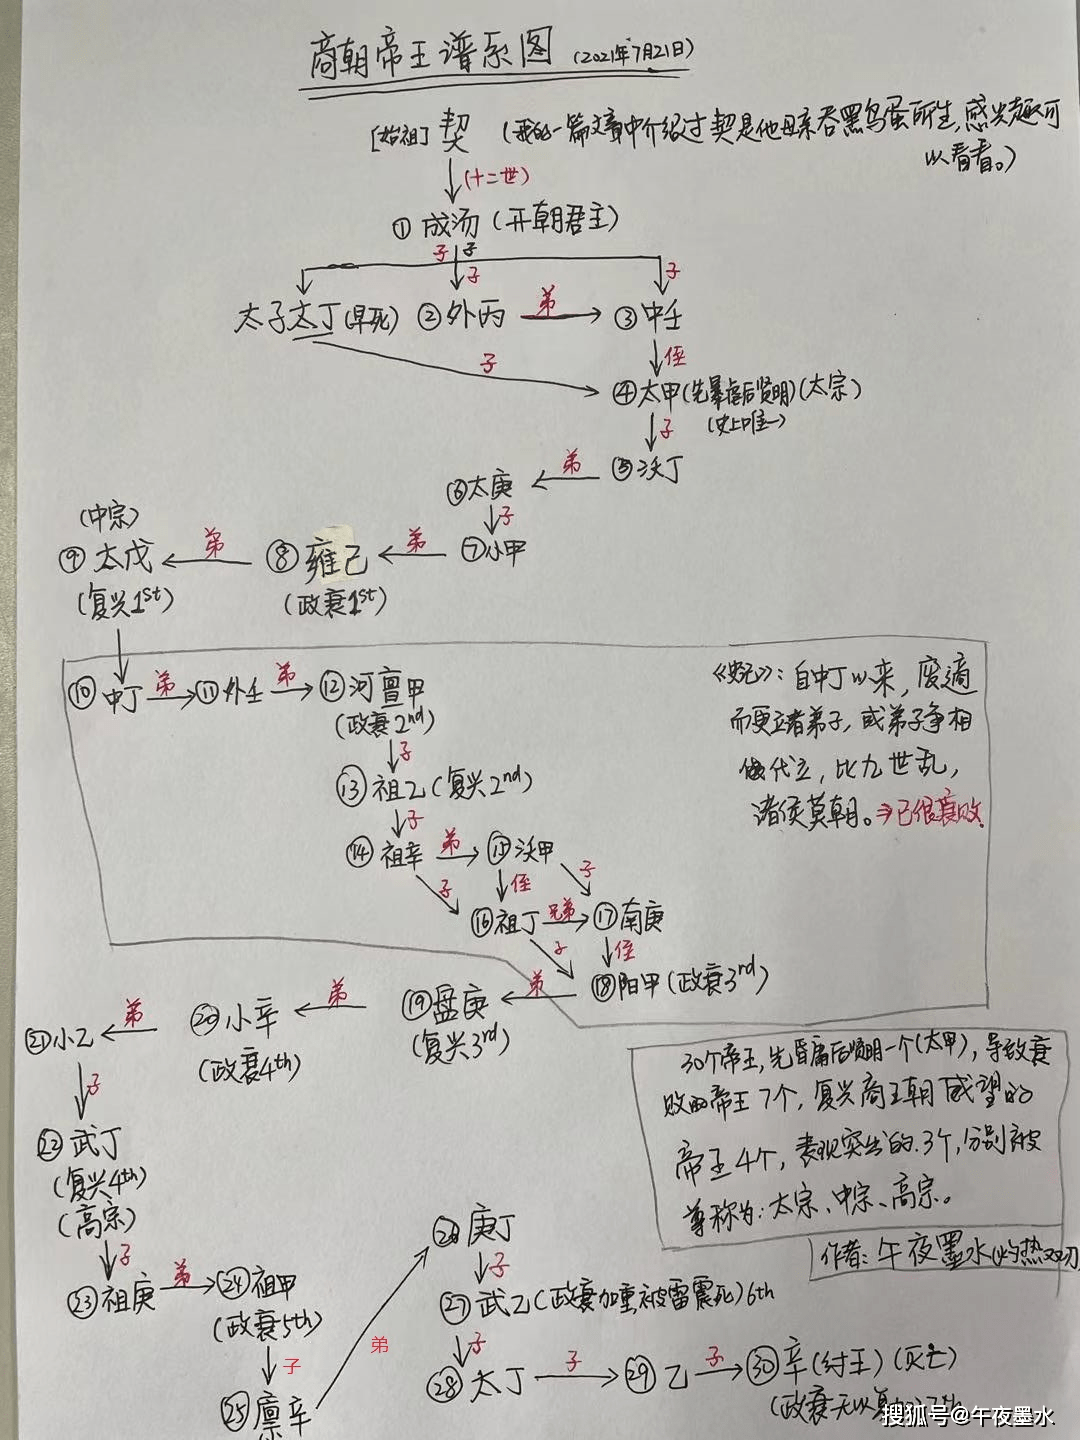 商朝帝王谱系图 (2021年7月21日)
[始祖] 契 (我的一篇文章中介绍过契是他母亲吞黑鸟蛋所生,感兴趣可
以看看。)
(十二世)
① 成汤 (开朝君主)
子 子
子 子
太子太丁(早死) ②外丙 弟 ③中壬
子 侄
④太甲(先暴虐后贤明)(太宗)
(史上唯一)
子
⑥太庚 弟 ⑤沃丁
子
(中宗)
⑨太戊 弟 ⑧雍己 弟 ⑦小甲
(复兴1st) (政衰1st)
⑩中丁 弟 ⑪外壬 弟 ⑫河亶甲
(政衰2nd)
子
⑬祖乙(复兴2nd)
子
⑭祖辛 弟 ⑮沃甲
子 侄 子
⑯祖丁 兄弟 ⑰南庚
子 侄
《史记》:自中丁以来,废適
而更立诸弟子,或弟子争相
代立,比九世乱,
诸侯莫朝。⇒已很衰败
㉑小乙 弟 ⑳小辛 弟 ⑲盘庚 弟 ⑱阳甲(政衰3rd)
(政衰4th) (复兴3rd)
子
㉒武丁
(复兴4th)
(高宗)
子
㉓祖庚 弟 ㉔祖甲
(政衰5th)
子
㉕廪辛
弟
㉖庚丁
子
㉗武乙(政衰加重,被雷震死)6th
子
㉘太丁 子 ㉙乙 子 ㉚辛(纣王)(灭亡)
(政衰无以复
30个帝王,先昏庸后贤明一个(太甲),导致衰
败的帝王7个,复兴商王朝威望的
帝王4个,表现突出的3个,分别被
尊称为:太宗、中宗、高宗。
作者:午夜墨水(灼热双刃
搜狐号@午夜墨水